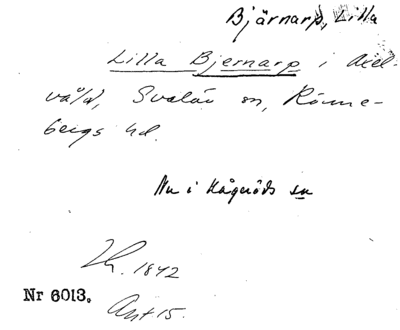 Bjärnarp, Lilla
Lilla Bjernarp i Axel-
vå/d, Svalöv sn, Rönne-
bergs hd.
Nu i Kågeröds sn
1842
Nr 6013.
Ant 15.